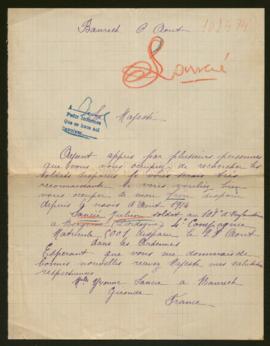 Baurech 6 Aout
Lancié
Majesté
Ayant appris par plusieurs personnes
que vous vous occupiez de rechercher les
soldats disparus je vous serais très
reconnaissante si vous vouliez bien
vous occuper de mon disparu
depuis le mois d'Aout 1914
Lancié Julien soldat au 108e
à Bergerac (Dordogne) 4e Compagnie
Matricule disparu le 28 Aout
dans les Ardennes
Esperant que vous me donnerais de
bonnes nouvelles recevez Majesté mes salutations
respectueuses
Lancié à Baurech
Gironde
France